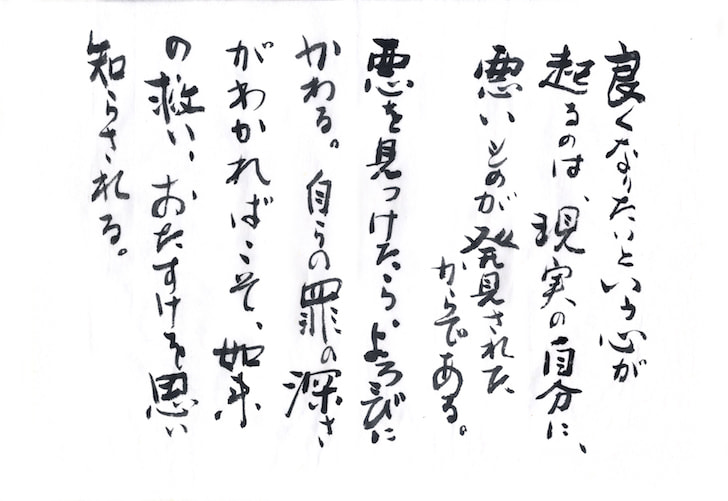 良くなりたいという心が
起るのは、現実の自分に、
悪いものが発見された
からである。
悪を見つけたら、よろこびに
かわる。自らの罪の深さ
がわかればこそ、如来
の救い、おたすけを思い
知らされる。